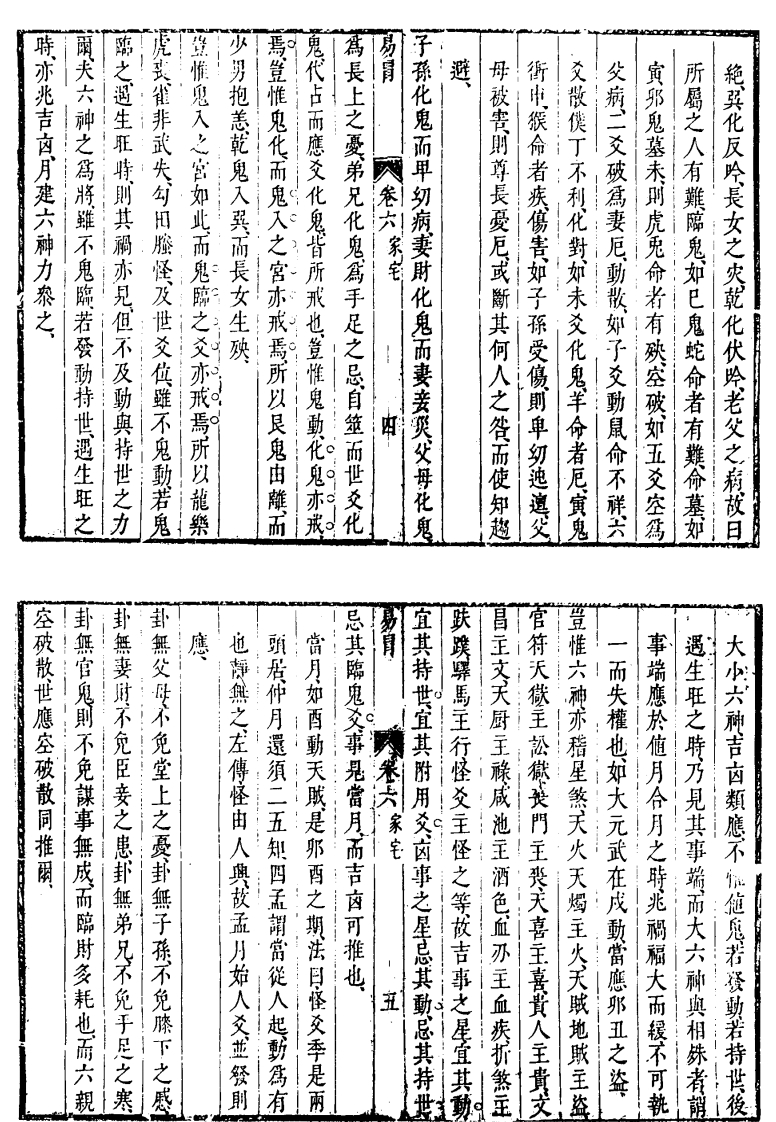 絶、巽化反吟、長女之灾、乾化伏吟、老父之病、故日
所屬之人有難、臨鬼、如巳鬼蛇命者有難、命墓、如
寅邜鬼墓未、則虎兎命者有殃、空破、如五爻空爲
父病、二爻破爲妻厄、動散、如子爻動鼠命不祥、六
爻散僕丁不利、化對、如未爻化鬼、羊命者厄、寅鬼
衝申、猴命者疾、傷害、如子孫受傷、則卑幼迍邅、父
母被害、則尊長憂厄、或斷其何人之咎、而使知趨
避、
子孫化鬼而卑幼病、妻財化鬼而妻妾災、父母化鬼、
易冒 卷六 家宅 四
爲長上之憂、弟兄化鬼、爲手足之忌、自筮而世爻化
鬼、代占而應爻化鬼、皆所戒也、豈惟鬼動、化鬼亦戒
焉、豈惟鬼化、而鬼入之宮亦戒焉、所以艮鬼由離、而
少男抱恙、乾鬼入巽、而長女生殃、
豈惟鬼入之宮如此、而鬼臨之爻亦戒焉、所以龍樂
虎喪、雀非武失、勾田螣怪、及世爻位、雖不鬼動、若鬼
臨之、遇生旺時、則其禍亦見、但不及動與持世之力
爾、夫六神之爲將、雖不鬼臨、若發動持世、遇生旺之
時、亦兆吉凶、月建六神力叅之、
大小六神吉凶類應、不惟値鬼、若發動、若持世、後
遇生旺之時、乃見其事端、而大六神與相姝者、誚
事端應於値月合月之時、兆禍福大而緩、不可執
一而失權也、如大元武在戌動、當應邜丑之盜、
豈惟六神、亦稽星煞、天火天燭主火、天賊地賊主盜、
官符天獄主訟獄、喪門主喪、天喜主喜、貴人主貴、文
昌主文、天厨主祿、咸池主酒色、血刃主血疾、折煞主
趺蹼、驛馬主行、怪爻主怪之等、故吉事之星、宜其動、
宜其持世、宜其附用爻、凶事之星、忌其動、忌其持世、
易冒 卷六 家宅 五
忌其臨鬼爻、事見當月、而吉凶可推也、
當月、如酉動天賊、是邜酉之期、法曰、怪爻季是兩
頭居、仲月還須二五知、四孟謂當從人起、動爲有
也、靜無之、左傳、怪由人興、故孟月始人爻、並發則
應、
卦無父母、不免堂上之憂、卦無子孫、不免膝下之慼、
卦無妻財、不免臣妾之患、卦無弟兄、不免手足之寒、
卦無官鬼、則不免謀事無成、而臨財多耗也、而六親
空破散、世應空破散同推爾、